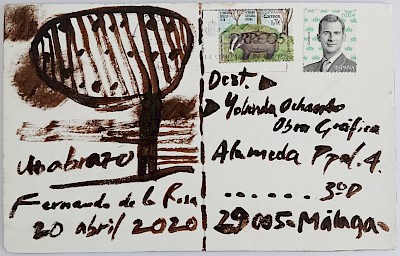 un abrazo
Fernando de la Rosa
20 abril 2020
CORREOS
ESPAÑA
Dest.
Yolanda Ochando
Obra Gráfica
Alameda Ppal. 4.
. . . . . . 3º D
29005 - Málaga